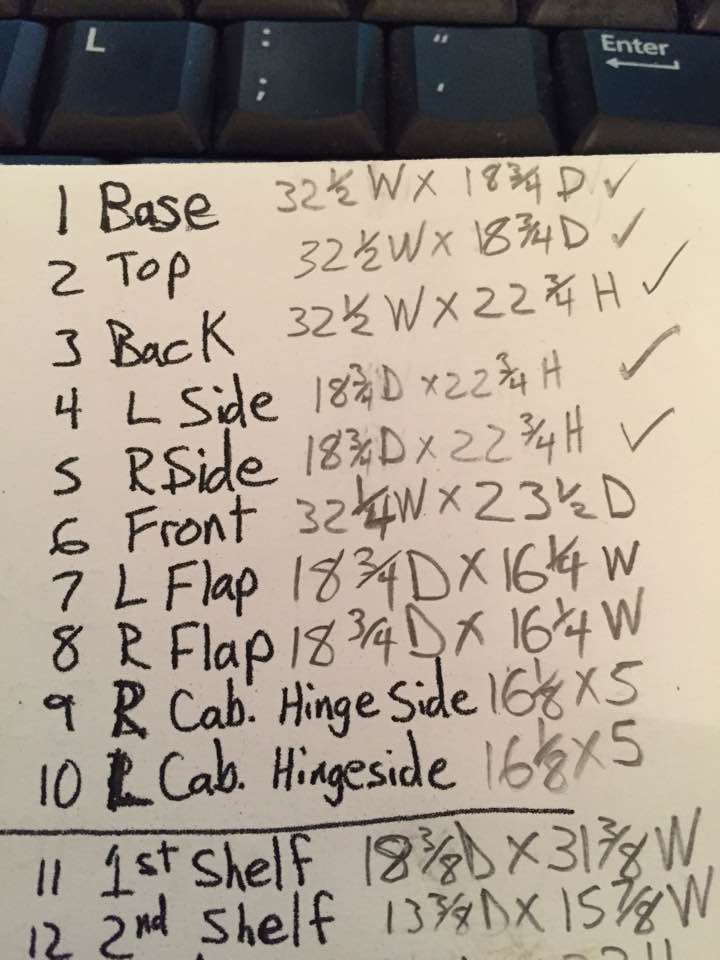 L
:
;
"
'
Enter
1 Base 32 1/2 W X 18 3/4 D ✓
2 Top 32 1/2 W X 18 3/4 D ✓
3 Back 32 1/2 W X 22 3/4 H ✓
4 L Side 18 3/4 D X 22 3/4 H ✓
5 R Side 18 3/4 D X 22 3/4 H ✓
6 Front 32 1/4 W X 23 1/2 D
7 L Flap 18 3/4 D X 16 1/4 W
8 R Flap 18 3/4 D X 16 1/4 W
9 R Cab. Hinge Side 16 1/8 X 5
10 L Cab. Hingeside 16 1/8 X 5
11 1st Shelf 18 3/8 D X 31 3/8 W
12 2nd Shelf 13 3/8 D X 15 7/8 W